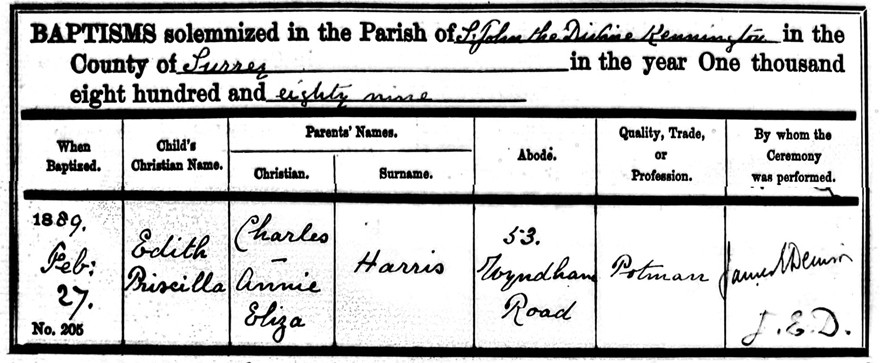 BAPTISMS solemnized in the Parish of S. John the Divine Kennington in the
County of Surrey in the year One thousand
eight hundred and eighty nine
When Baptized.
Child's Christian Name.
Parents' Names.
Christian.
Surname.
Abode.
Quality, Trade, or Profession.
By whom the Ceremony was performed.
1889.
Feb:
27.
No. 205
Edith
Priscilla
Charles
—
Annie
Eliza
Harris
53.
Wyndham
Road
Potman
James
J. E. D.